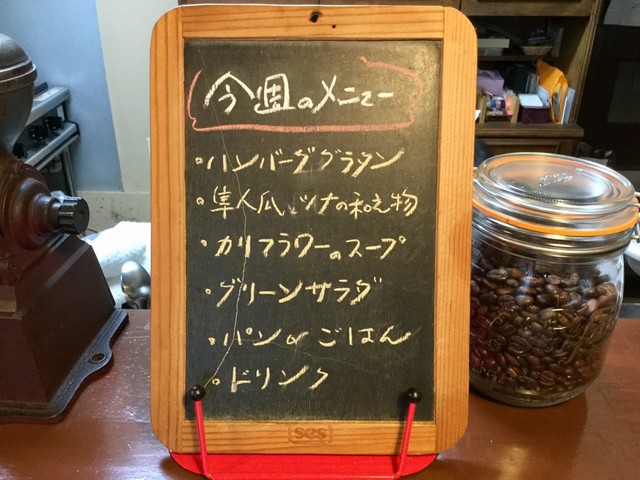 今週のメニュー
・ハンバーググラタン
・隼人瓜とツナの和え物
・カリフラワーのスープ
・グリーンサラダ
・パンorごはん
・ドリンク
SGS